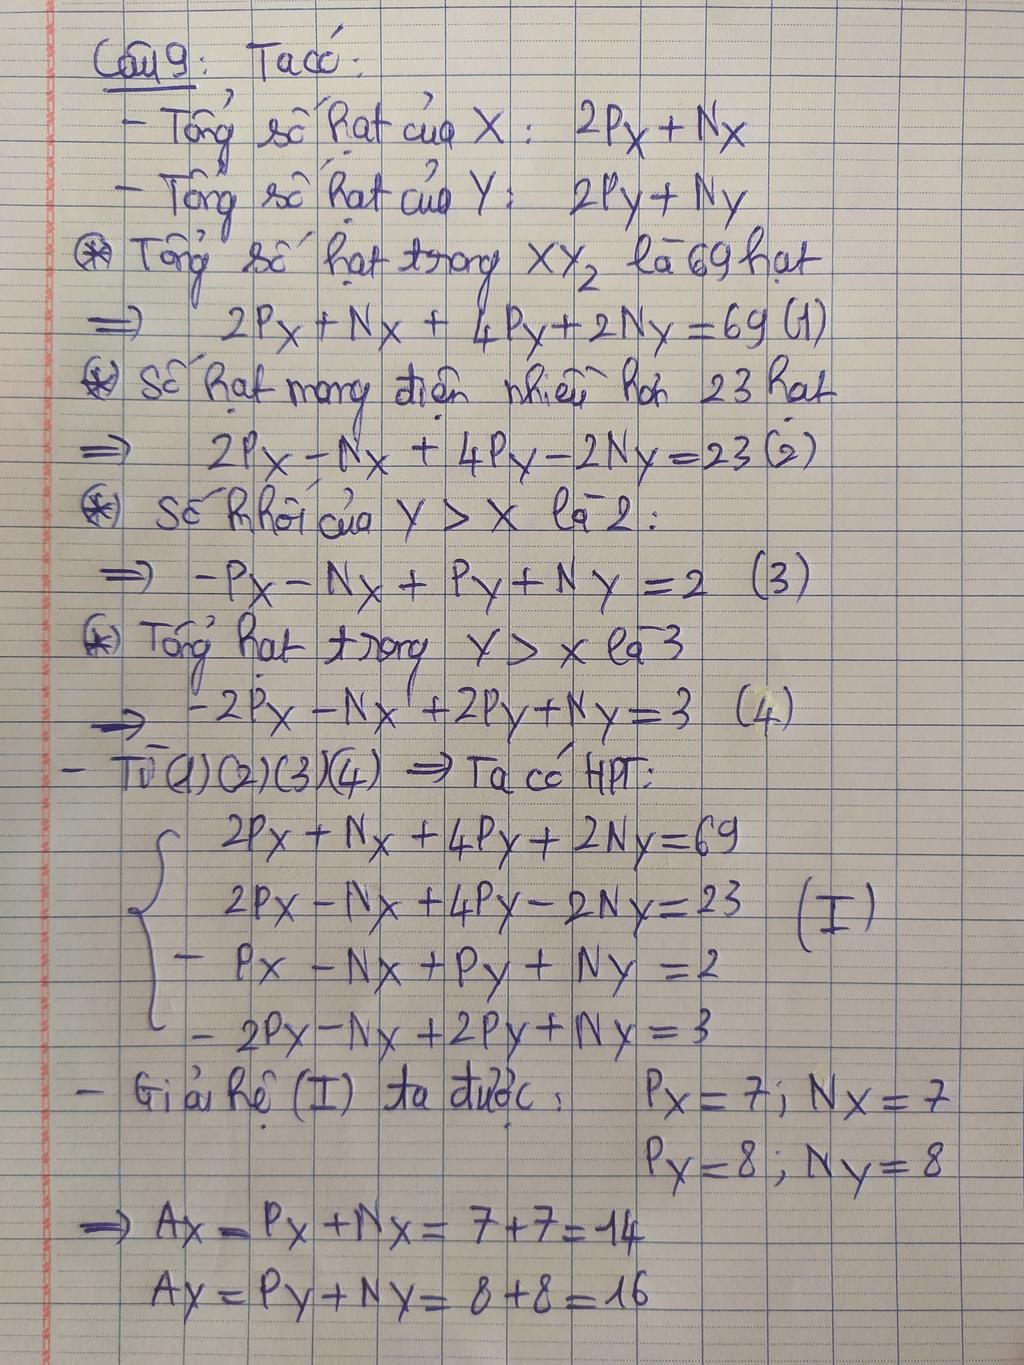 Câu 9: Ta có:
- Tổng số hạt của X: 2Px + Nx
- Tổng số hạt của Y: 2Py + Ny
* Tổng số hạt trong XY₂ là 69 hạt
=> 2Px + Nx + 4Py + 2Ny = 69 (1)
* Số hạt mang điện nhiều hơn 23 hạt
=> 2Px - Nx + 4Py - 2Ny = 23 (2)
* Số khối của Y > X là 2:
=> -Px - Nx + Py + Ny = 2 (3)
* Tổng hạt trong Y > X là 3
=> -2Px - Nx + 2Py + Ny = 3 (4)
- Từ (1)(2)(3)(4) => Ta có HPT:
2Px + Nx + 4Py + 2Ny = 69
2Px - Nx + 4Py - 2Ny = 23 (I)
- Px - Nx + Py + Ny = 2
- 2Px - Nx + 2Py + Ny = 3
- Giải hệ (I) ta được: Px = 7; Nx = 7
Py = 8; Ny = 8
=> Ax = Px + Nx = 7 + 7 = 14
Ay = Py + Ny = 8 + 8 = 16